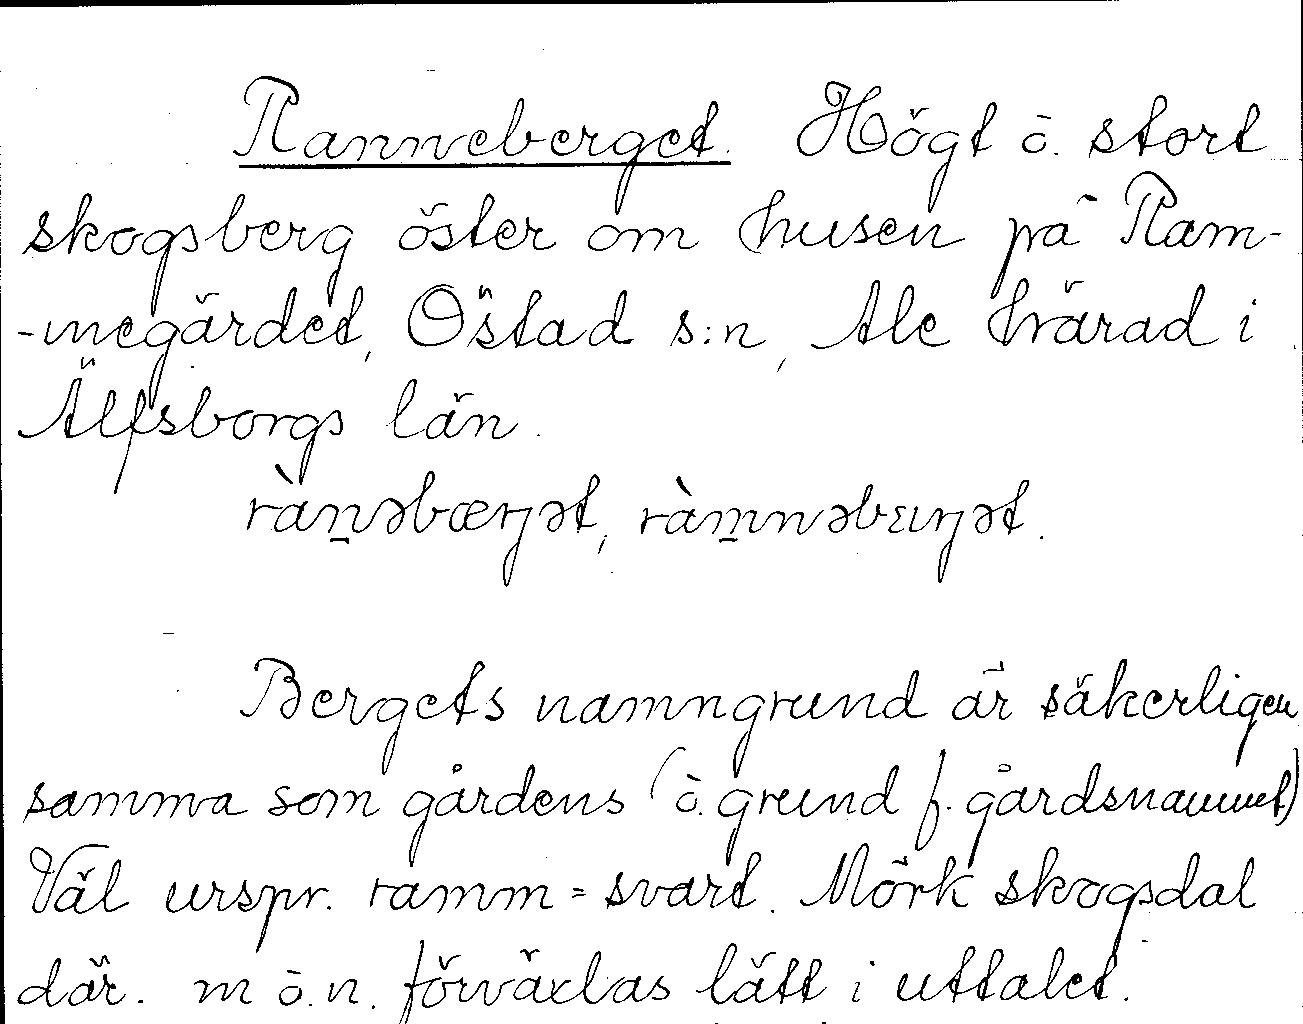 Ranneberget. Högt o. stort
skogsberg öster om husen på Ram-
-megärdet, Östad s:n, Ale härad i
Älfsborgs län.
rànəbærgət, ràmnəbærgət.
Bergets namngrund är säkerligen
samma som gårdens (o. grund f. gårdsnamnet)
Väl urspr. ramm = svart. Mörk skogsdal
där. m o. n. förväxlas lätt i uttalet.